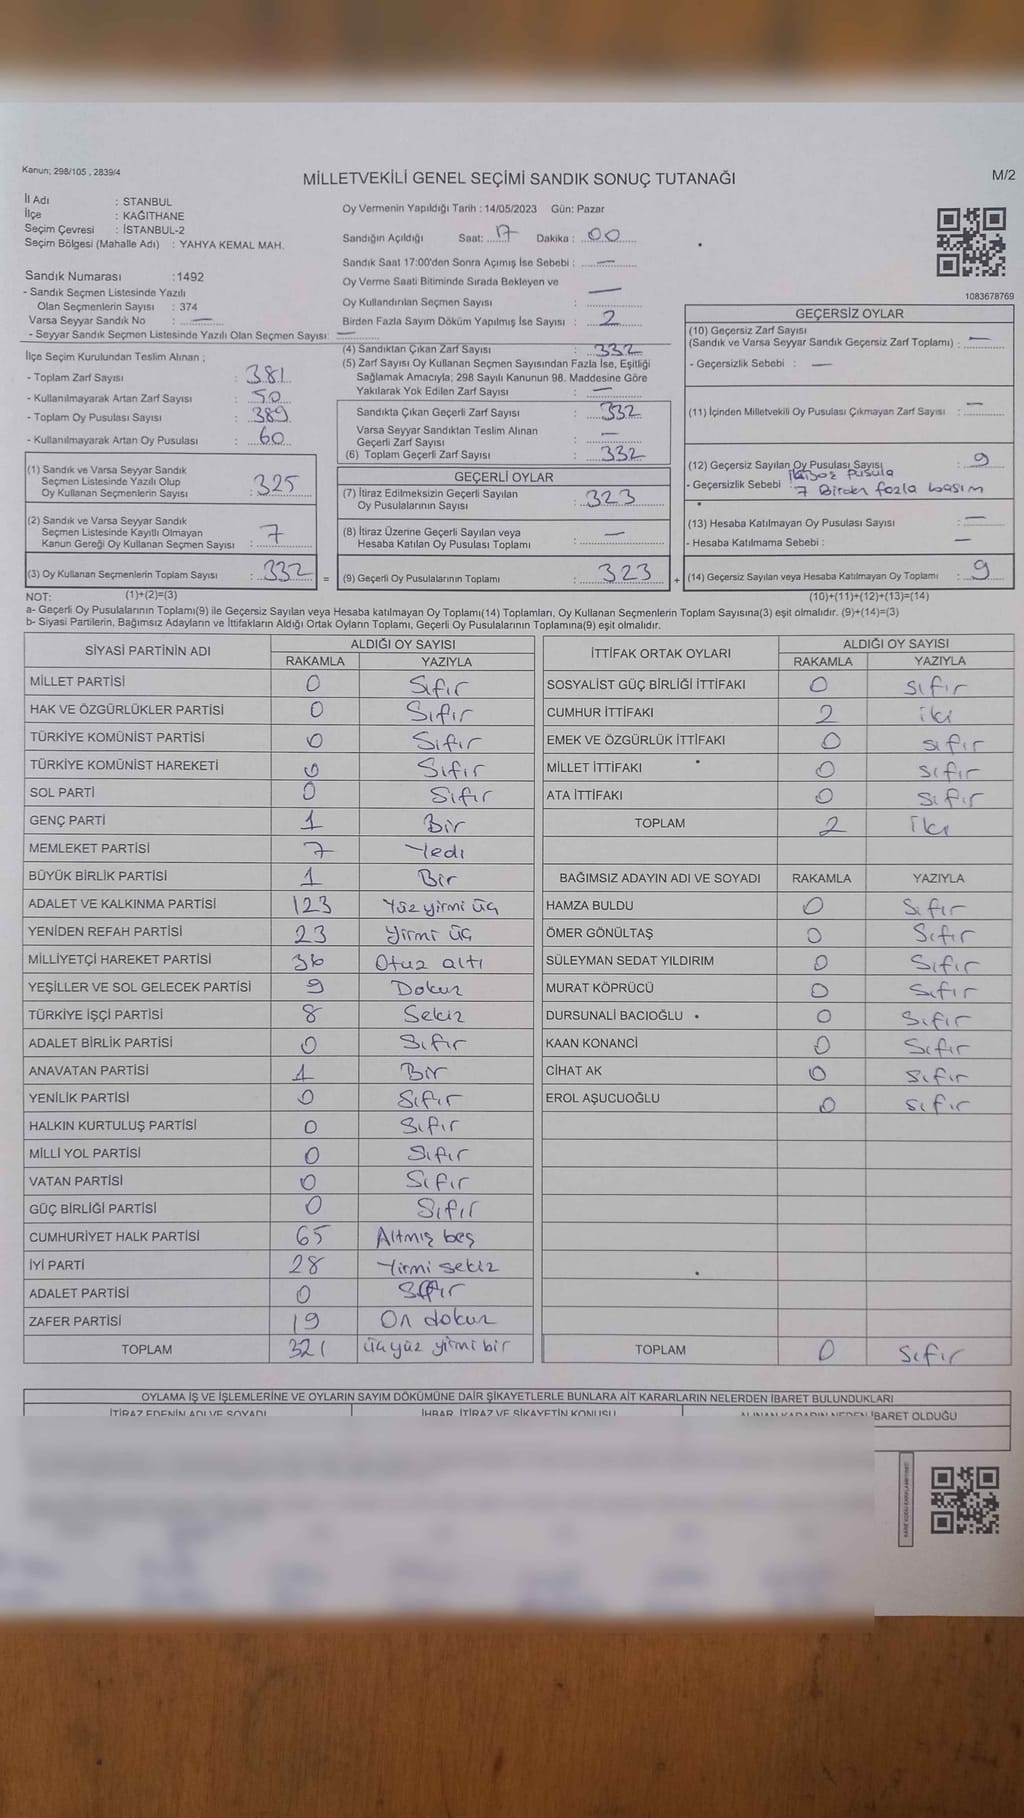 Kanun; 298/105 , 2839/4
MİLLETVEKİLİ GENEL SEÇİMİ SANDIK SONUÇ TUTANAĞI
M/2
İl Adı : STANBUL
İlçe : KAĞITHANE
Seçim Çevresi : İSTANBUL-2
Seçim Bölgesi (Mahalle Adı) : YAHYA KEMAL MAH.
Sandık Numarası :1492
- Sandık Seçmen Listesinde Yazılı
Olan Seçmenlerin Sayısı : 374
Varsa Seyyar Sandık No : —
- Seyyar Sandık Seçmen Listesinde Yazılı Olan Seçmen Sayısı: —
Oy Vermenin Yapıldığı Tarih : 14/05/2023 Gün: Pazar
Sandığın Açıldığı Saat: 17 Dakika : 00
Sandık Saat 17:00'den Sonra Açımış İse Sebebi : —
Oy Verme Saati Bitiminde Sırada Bekleyen ve
Oy Kullandırılan Seçmen Sayısı : —
Birden Fazla Sayım Döküm Yapılmış İse Sayısı : 2
1083678769
İlçe Seçim Kurulundan Teslim Alınan ;
- Toplam Zarf Sayısı : 381
- Kullanılmayarak Artan Zarf Sayısı : 50
- Toplam Oy Pusulası Sayısı : 389
- Kullanılmayarak Artan Oy Pusulası : 60
(1) Sandık ve Varsa Seyyar Sandık
Seçmen Listesinde Yazılı Olup
Oy Kullanan Seçmenlerin Sayısı : 325
(2) Sandık ve Varsa Seyyar Sandık
Seçmen Listesinde Kayıtlı Olmayan
Kanun Gereği Oy Kullanan Seçmen Sayısı : 7
(3) Oy Kullanan Seçmenlerin Toplam Sayısı : 332 =
(4) Sandıktan Çıkan Zarf Sayısı : 332
(5) Zarf Sayısı Oy Kullanan Seçmen Sayısından Fazla İse, Eşitliği
Sağlamak Amacıyla; 298 Sayılı Kanunun 98. Maddesine Göre
Yakılarak Yok Edilen Zarf Sayısı : —
Sandıkta Çıkan Geçerli Zarf Sayısı : 332
Varsa Seyyar Sandıktan Teslim Alınan
Geçerli Zarf Sayısı : —
(6) Toplam Geçerli Zarf Sayısı : 332
GEÇERLİ OYLAR
(7) İtiraz Edilmeksizin Geçerli Sayılan
Oy Pusulalarının Sayısı : 323
(8) İtiraz Üzerine Geçerli Sayılan veya
Hesaba Katılan Oy Pusulası Toplamı : —
(9) Geçerli Oy Pusulalarının Toplamı : 323 +
GEÇERSİZ OYLAR
(10) Geçersiz Zarf Sayısı
(Sandık ve Varsa Seyyar Sandık Geçersiz Zarf Toplamı) : —
- Geçersizlik Sebebi : —
(11) İçinden Milletvekili Oy Pusulası Çıkmayan Zarf Sayısı : —
(12) Geçersiz Sayılan Oy Pusulası Sayısı : 9
- Geçersizlik Sebebi : pusula
7 Birden fazla basım
(13) Hesaba Katılmayan Oy Pusulası Sayısı : —
- Hesaba Katılmama Sebebi : —
(14) Geçersiz Sayılan veya Hesaba Katılmayan Oy Toplamı : 9
NOT: (1)+(2)=(3) (10)+(11)+(12)+(13)=(14)
a- Geçerli Oy Pusulalarının Toplamı(9) ile Geçersiz Sayılan veya Hesaba katılmayan Oy Toplamı(14) Toplamları, Oy Kullanan Seçmenlerin Toplam Sayısına(3) eşit olmalıdır. (9)+(14)=(3)
b- Siyasi Partilerin, Bağımsız Adayların ve İttifakların Aldığı Ortak Oyların Toplamı, Geçerli Oy Pusulalarının Toplamına(9) eşit olmalıdır.
SİYASİ PARTİNİN ADI ALDIĞI OY SAYISI
RAKAMLA YAZIYLA
MİLLET PARTİSİ 0 Sıfır
HAK VE ÖZGÜRLÜKLER PARTİSİ 0 Sıfır
TÜRKİYE KOMÜNİST PARTİSİ 0 Sıfır
TÜRKİYE KOMÜNİST HAREKETİ 0 Sıfır
SOL PARTİ 0 Sıfır
GENÇ PARTİ 1 Bir
MEMLEKET PARTİSİ 7 Yedi
BÜYÜK BİRLİK PARTİSİ 1 Bir
ADALET VE KALKINMA PARTİSİ 123 Yüz yirmi üç
YENİDEN REFAH PARTİSİ 23 Yirmi üç
MİLLİYETÇİ HAREKET PARTİSİ 36 Otuz altı
YEŞİLLER VE SOL GELECEK PARTİSİ 9 Dokuz
TÜRKİYE İŞÇİ PARTİSİ 8 Sekiz
ADALET BİRLİK PARTİSİ 0 Sıfır
ANAVATAN PARTİSİ 1 Bir
YENİLİK PARTİSİ 0 Sıfır
HALKIN KURTULUŞ PARTİSİ 0 Sıfır
MİLLİ YOL PARTİSİ 0 Sıfır
VATAN PARTİSİ 0 Sıfır
GÜÇ BİRLİĞİ PARTİSİ 0 Sıfır
CUMHURİYET HALK PARTİSİ 65 Altmış beş
İYİ PARTİ 28 Yirmi sekiz
ADALET PARTİSİ 0 Sıfır
ZAFER PARTİSİ 19 On dokuz
TOPLAM 321 üçyüz yirmi bir
İTTİFAK ORTAK OYLARI ALDIĞI OY SAYISI
RAKAMLA YAZIYLA
SOSYALİST GÜÇ BİRLİĞİ İTTİFAKI 0 sıfır
CUMHUR İTTİFAKI 2 iki
EMEK VE ÖZGÜRLÜK İTTİFAKI 0 sıfır
MİLLET İTTİFAKI 0 sıfır
ATA İTTİFAKI 0 sıfır
TOPLAM 2 İki
BAĞIMSIZ ADAYIN ADI VE SOYADI RAKAMLA YAZIYLA
HAMZA BULDU 0 Sıfır
ÖMER GÖNÜLTAŞ 0 Sıfır
SÜLEYMAN SEDAT YILDIRIM 0 Sıfır
MURAT KÖPRÜCÜ 0 Sıfır
DURSUNALİ BACIOĞLU 0 Sıfır
KAAN KONANCİ 0 Sıfır
CİHAT AK 0 Sıfır
EROL AŞUCUOĞLU 0 sıfır
TOPLAM 0 Sıfır
OYLAMA İŞ VE İŞLEMLERİNE VE OYLARIN SAYIM DÖKÜMÜNE DAİR ŞİKAYETLERLE BUNLARA AİT KARARLARIN NELERDEN İBARET BULUNDUKLARI
İTİRAZ EDENİN ADI VE SOYADI İHBAR, İTİRAZ VE ŞİKAYETİN KONUSU ALINAN KARARIN NEDEN İBARET OLDUĞU